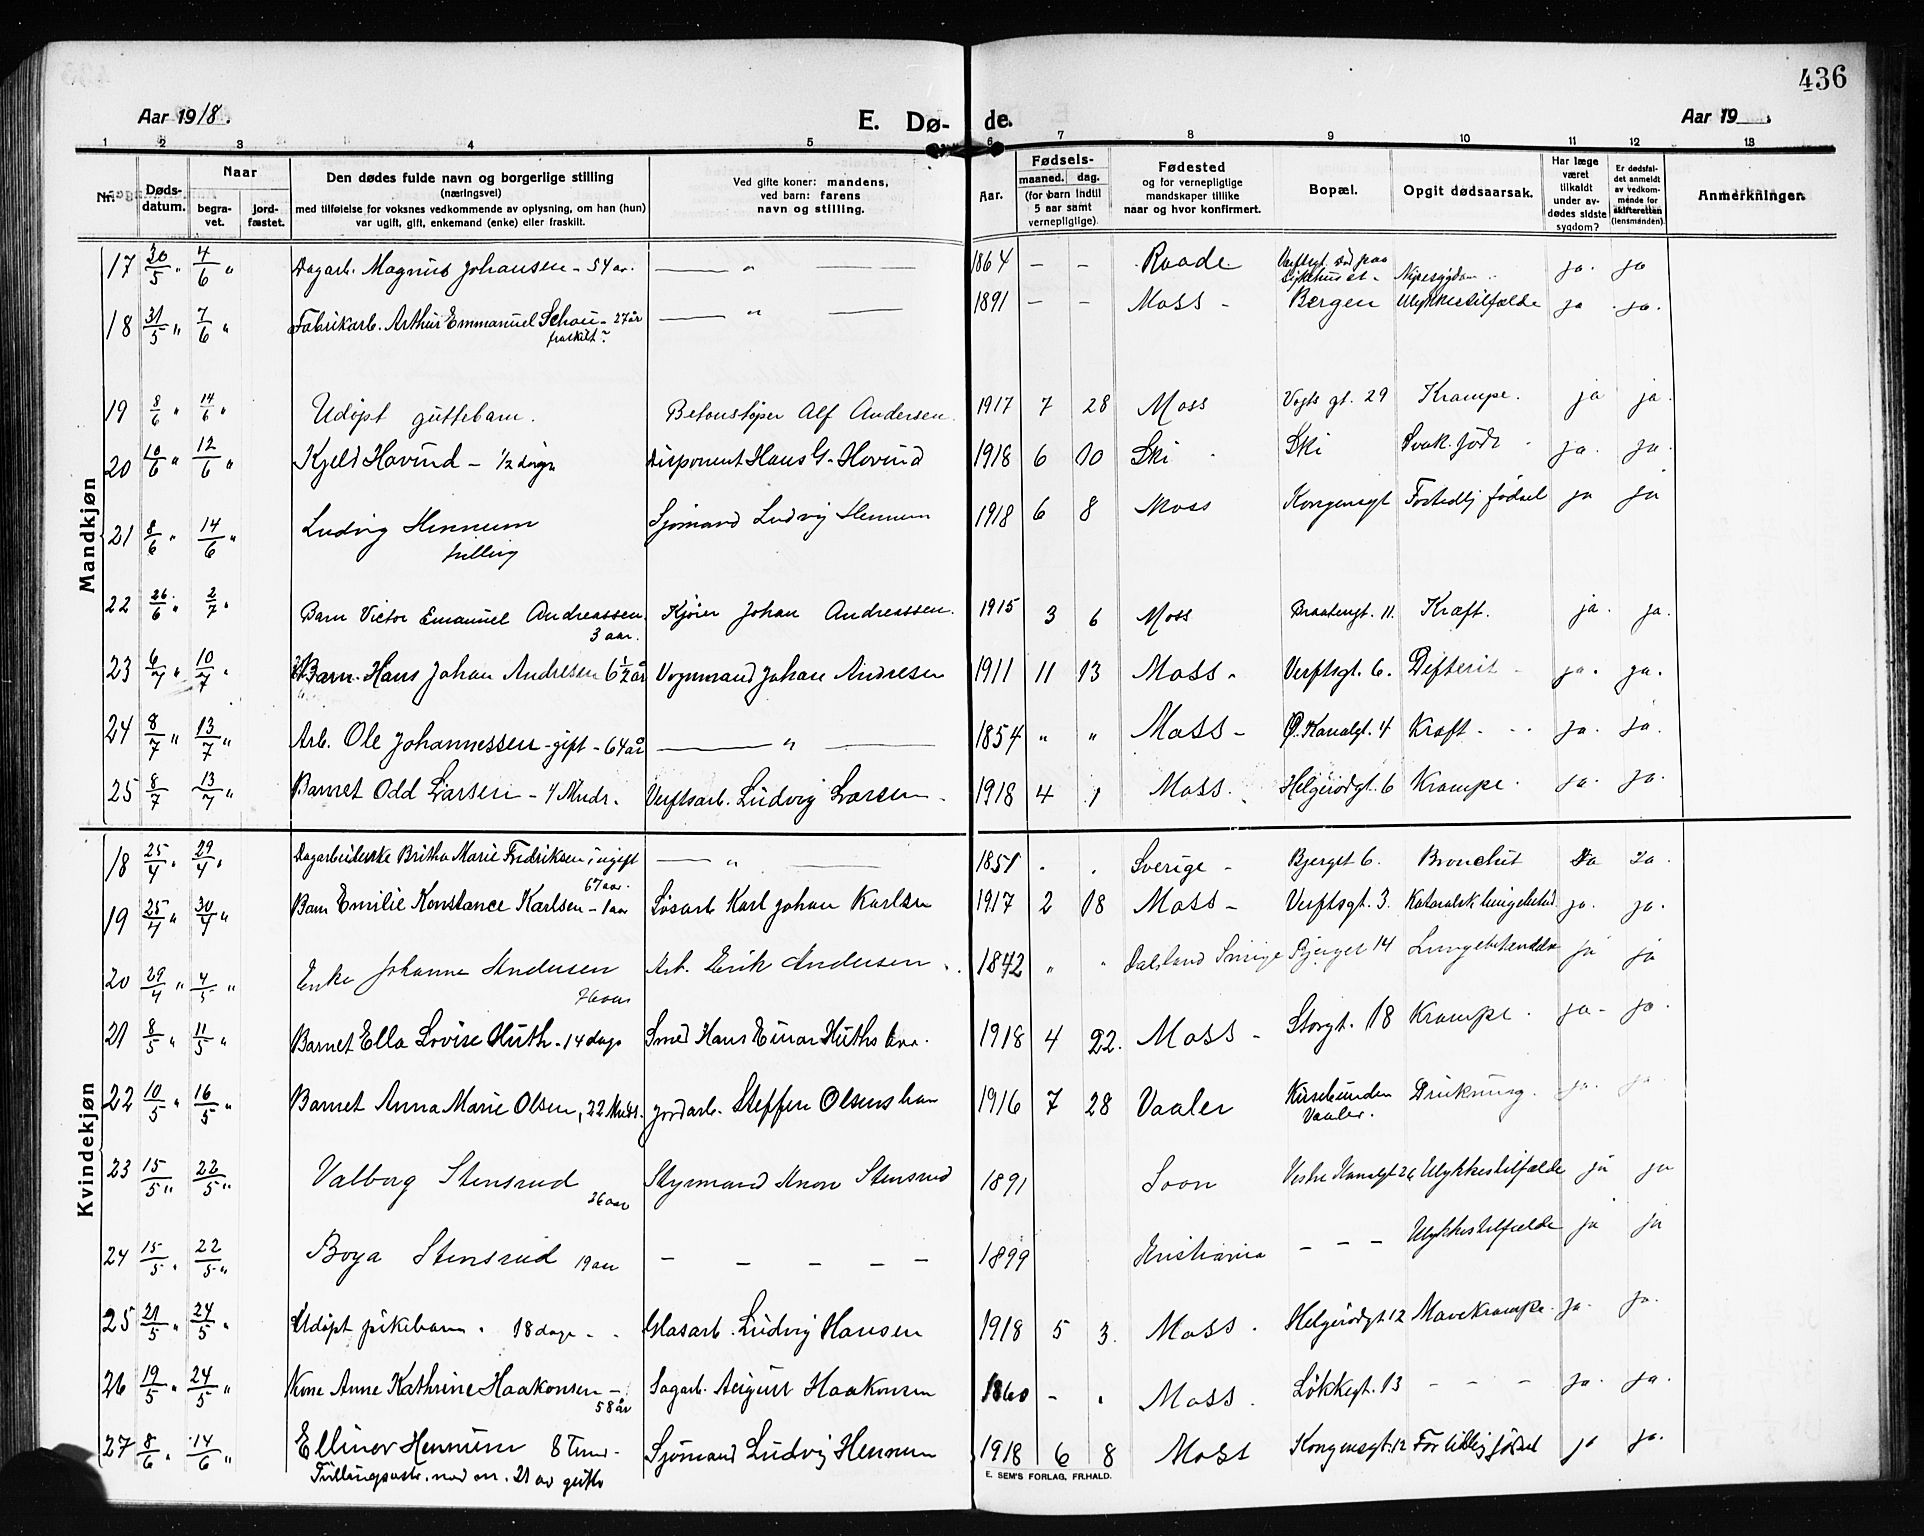 436
Aar 1918.
E. Dø-
de.
Aar 19
1 2 3 4 5 6 7 8 9 10 11 12 13
Nr.
Døds-
datum.
Naar
begra-
vet.
jord-
fæstet.
Den dødes fulde navn og borgerlige stilling
(næringsvei)
med tilføielse for voksnes vedkommende av oplysning, om han (hun)
var ugift, gift, enkemand (enke) eller fraskilt.
Ved gifte koner: mandens,
ved barn: farens
navn og stilling.
Aar.
Fødsels-
maaned. dag.
(for barn indtil
5 aar samt
vernepligtige).
Fødested
og for vernepligtige
mandskaper tillike
naar og hvor konfirmert.
Bopæl.
Opgit dødsaarsak.
Har læge
været
tilkaldt
under av-
dødes sidste
sygdom?
Er dødsfal-
det anmeldt
av vedkom-
mende for
skifteretten
(lensmanden).
Anmerkninger.
Mandkjøn
17 30/5 " 4/6 " Dagarb. Magnus Johansen - 54 aar. — " — 1864 - - Raade. ja. ja
18 31/5 " 7/6 " Fabrikarb. Arthur Emmanuel Schou - 27 år — " — 1891 - - Moss - Bergen Ulykkestilfælde ja ja.
fraskilt
19 8/6 " 14/6 " Udøpt guttebarn. Betonstøper Alf Andersen. 1917 7 28 Moss Vogts gt. 29 Krampe. ja ja.
20 10/6 " 12/6 " Kjeld Hovind - 1/2 døgn Disponent Hans G. Hovind 1918 6 10 Ski Ski Svak. født ja. ja.
21 8/6 " 14/6 " Ludvig Hennum Sjømand Ludvig Hennum 1918 6 8 Moss Kongensgt Fortidlig fødsel ja ja
tvilling
22 26/6 " 2/7 " Barn Victor Emanuel Andreassen. Kjører Johan Andreassen. 1915 3 6 Moss Braatengt. 11. Kræft. ja. ja.
3 aar.
23 6/7 " 10/7 " Barn. Hans Johan Andresen 6 1/2 år Vognmand Johan Andresen 1911 11 13 Moss - Verftsgt. 6. Difterit - ja. ja.
24 8/7 " 13/7 " Arb. Ole Johannessen - gift - 64 år — " — 1854 " " Moss - Ø. Kanalgt. 4 Kræft - ja. ja.
25 8/7 13/7 " Barnet Odd Larsen - 4 Mndr. Verftsarb. Ludvig Larsen. 1918 4 1 Moss. Helgerødgt. 6 Krampe. ja. ja.
Kvindekjøn
18 25/4 " 29/4 " Dagarbeiderske Britha Marie Fredriksen, ugift — " — 1851 . . Sverige - Bjerget 6. Bronchit Ja Ja.
67 aar.
19 25/4 " 30/4 " Barn Emilie Konstance Karlsen - 1 aar Løsarb. Karl Johan Karlsen 1917 2 18 Moss - Verftsgt. 3. ja. ja.
20 29/4 " 4/5 " Enke Johanne Andersen Arb. Erik Andersen. 1842 " " Dalsland Sverige Bjerget 14 Lungebetændelse ja ja
76 aar
21 8/5 " 11/5 " Barnet Ella Lovise Huth - 14 dage Smed Hans Einar Huths barn. 1918 4 22. Moss - Storgt. 18 Krampe. ja - ja.
22 10/5 " 16/5 " Barnet Anna Marie Olsen, 22 Mndr. Jordarb. Steffen Olsens barn 1916 7 28 Vaaler Drukning. ja. ja.
Vaaler.
23 15/5 " 22/5 " Valborg Stensrud Styrmand Stensrud 1891 Soon Vestre Kanalgt 26 Ulykkestilfælde ja ja
26 aar
24 15/5 . 22/5 " Boya Stensrud 19 aar - - - - - 1899 Kristiania - - - Ulykkestilfælde ja ja
25 21/5 " 24/5 " Udøpt pikebarn. 18 dage - Glasarb. Ludvig Hansen 1918 5 3. Moss. Helgerødgt. 12 Mavekrampe. ja. ja.
26 19/5 " 24/5 " Kone Anne Kathrine Haakonsen - Sagarb. August Haakonsen 1860 - . Moss. Løkkegt. 13 - - - ja. ja.
58 år
27 8/6 " 14/6 " Ellinor Hennum 8 Sjømand Ludvig Hennum 1918 6 8 Moss Kongensgt. 12 For tidlig fødsel ja ja.
Tvillingsøster. med nr. 21 av gutter
E. SEM'S FORLAG, FR.HALD.